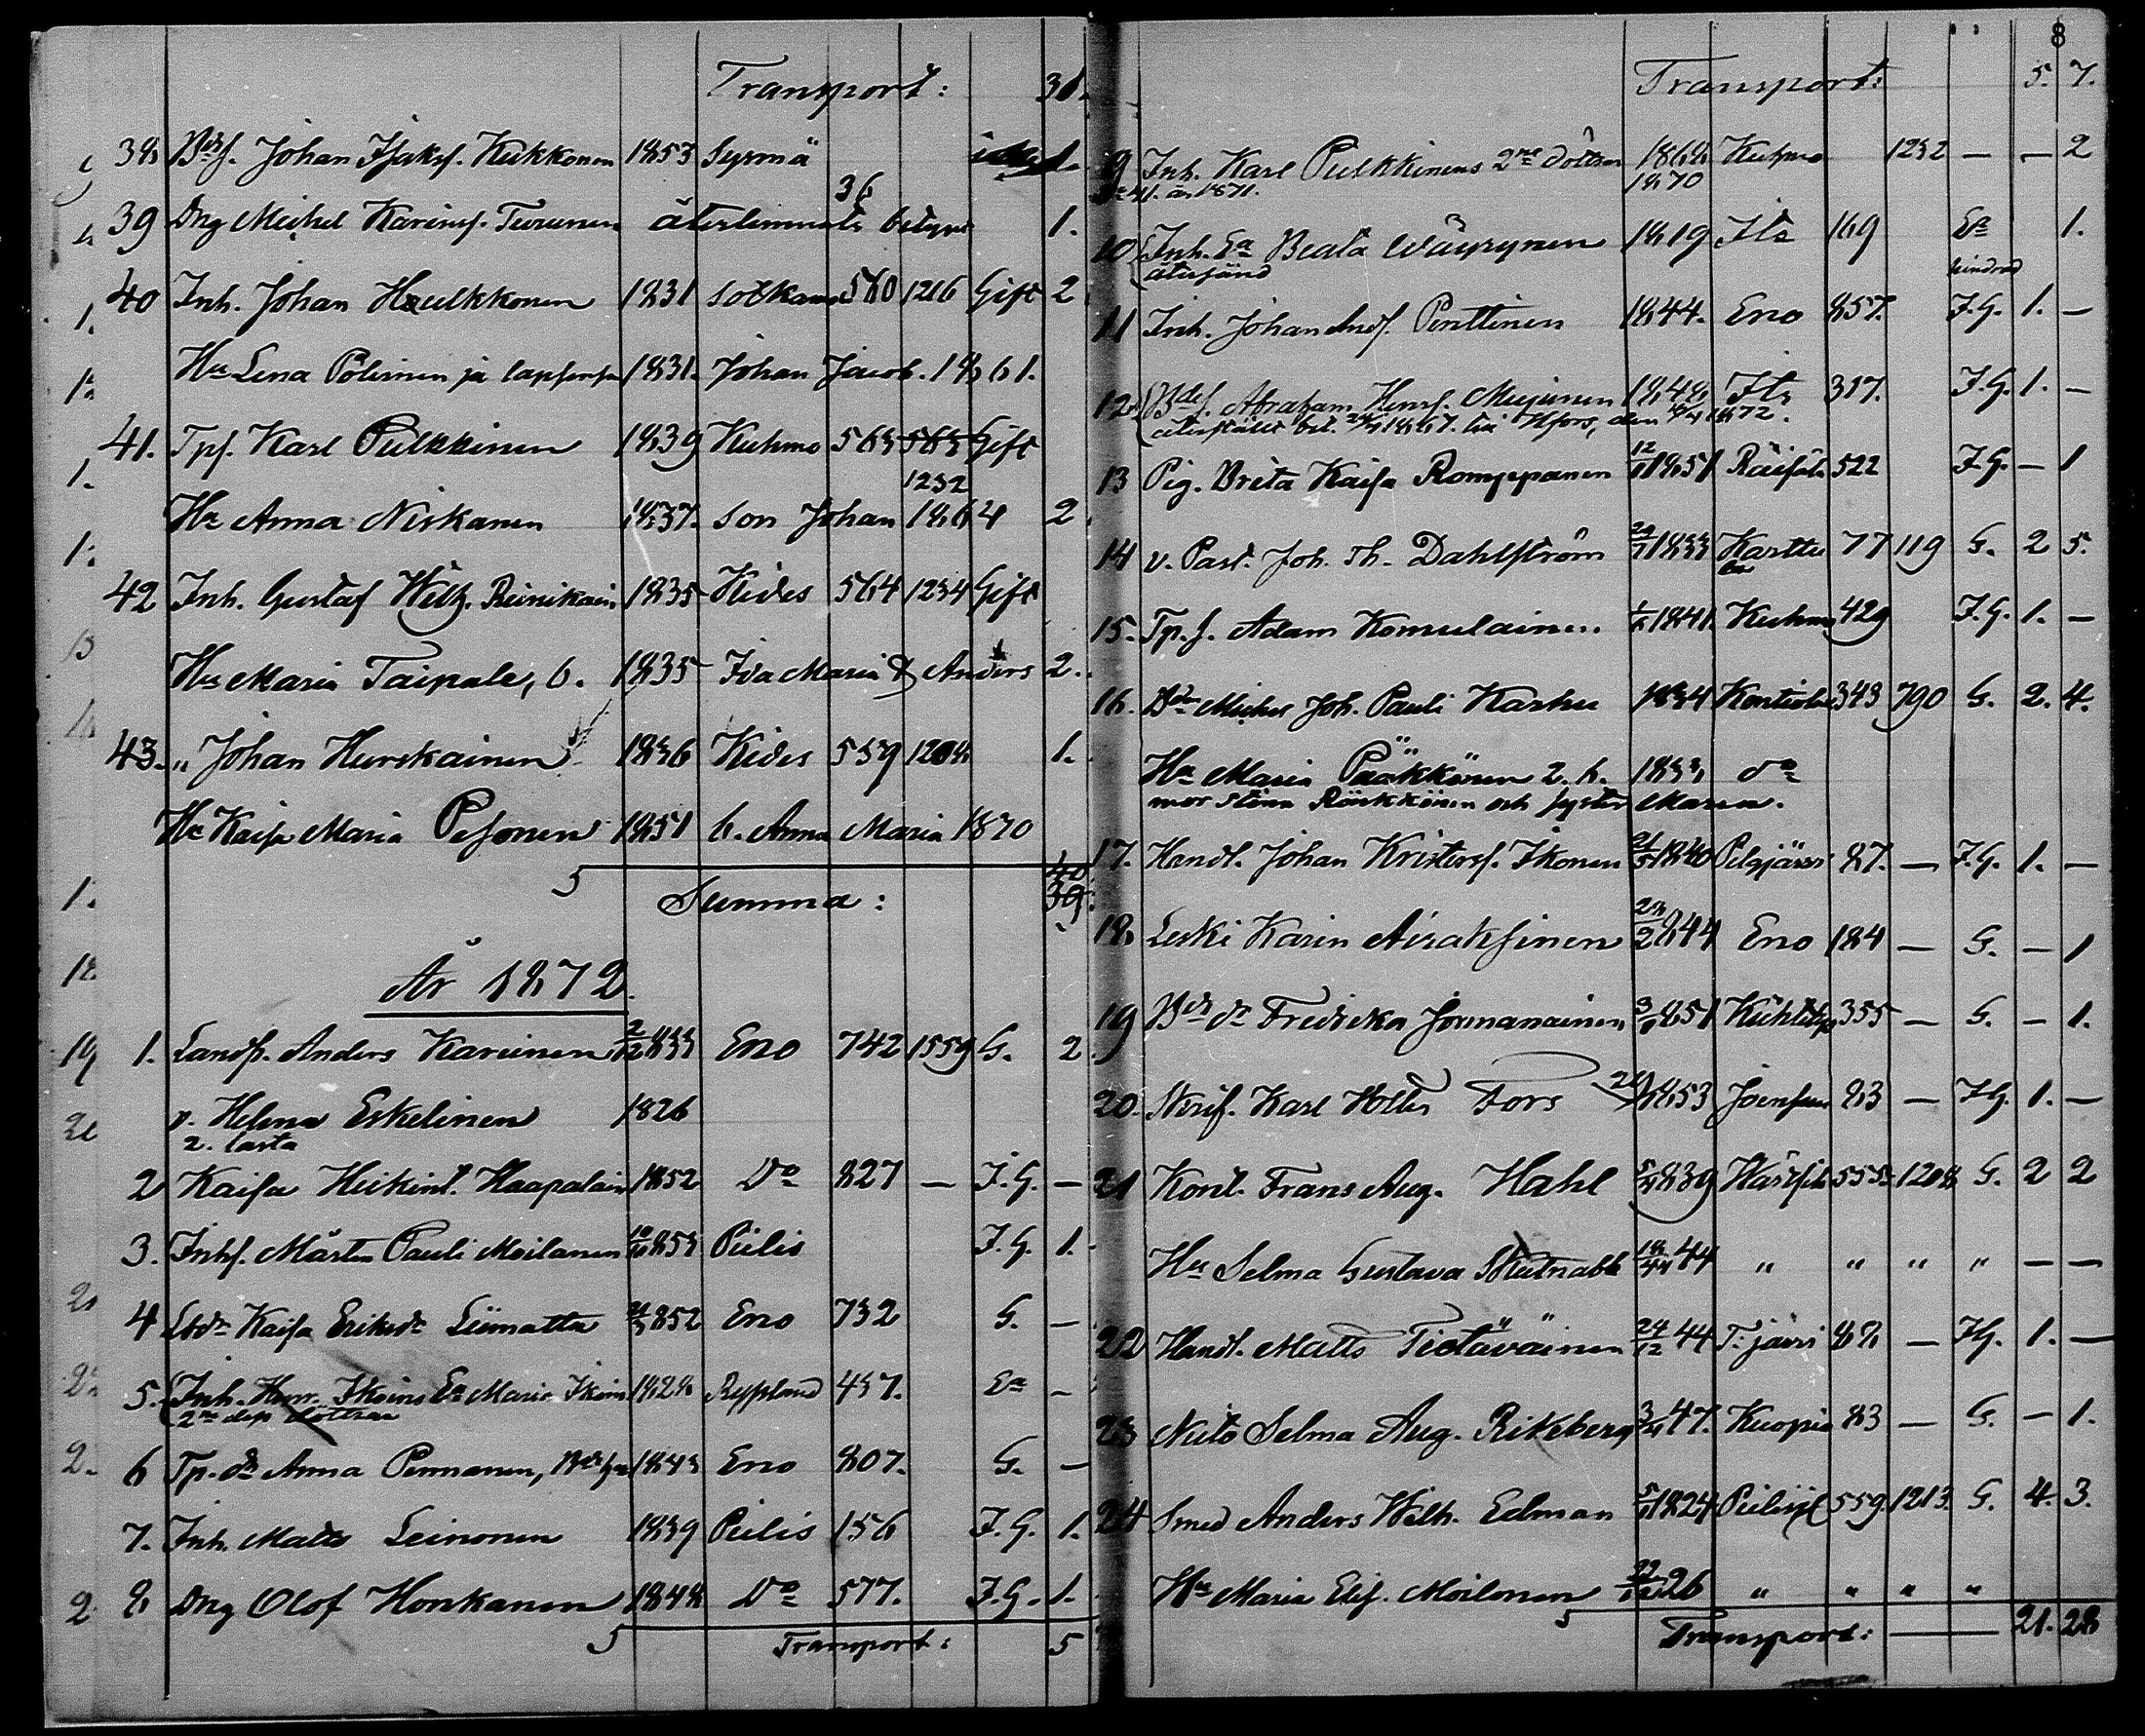 Transport: 31.
38 Bds. Johan Isaksf. Kukkonen 1853 Syrmä 1.
36
39 Dng Michel Karinsf. Turunen återlemnats betyg 1.
40 Inh. Johan Haulkkonen 1831 Sotkamo 580 1216 Gift 2
Hu Lena Pölönen ja lapsensa 1831. Johan Jacob. 1861.
41. Tpf. Karl Pulkkinen 1839 Kuhmo 563 563 Gift
1232
Hu Anna Niskanen 1837. son Johan 1864 2.
42 Inh. Gustaf Wilh. Reinikain 1835 Kides 564 1234 Gift
Hu Maria Taipale, b. 1835 Ida Maria & Anders 2.
43. " Johan Hurskainen 1836 Kides 539 1204 1.
Hu Kaisa Maria Pesonen 1851 b. Anna Maria 1870
40
Summa: 39.
År 1872.
1. Landb. Anders Karvinen 2/12 833 Eno 742 1559 G. 2
v. Helena Eskelinen 1826
2. lasta
2 Kaisa Heikint. Haapalain 1852 Do 827 — I.G. —
3. Inhf. Mårten Pauli Moilanen 10/10 853 Pielis I.G. 1.
4 Lbdr Kaisa Eriksdr Liimatta 21/3 852 Eno 732 G. —
5. Inh. Henr. Ikoins Ea Maria Ikoin 1828 Ryssland 437. Ea -
2ne dess döttrar
6 Tp. dr Anna Pennanen, 1843 Eno 807. G. —
7. Inh. Matts Leinonen 1839 Pielis 156 I.G. 1.
8 Dng Olof Honkanen 1848 Do 577. I.G. 1.
Transport: 5
8
Transport: 5. 7.
9 Inh. Karl Pulkkinens 2ne döttrar 1868 Kuhmo 1232 — — 2
år 1871. 1870
10 Inh. Ea Beata Wäyrynen 1819 Its 169 Ea 1.
återsänd hindrad
11 Inh. Johan Andf. Penttinen 1844. Eno 857. I.G. 1. —
12 Bdef. Abraham Henrf. Mujunen 1848 Its 317. I.G. 1. —
återstäldt bet. 1867. till Hfors, den 1872.
13 Pig. Brita Kaisa Romppanen 12/11 1851 Räisäle 522 I.G. — 1
14 v. Past. Joh. Th. Dahlström 29/7 1833 Karttu 77 119 G. 2 5.
la
15. Tp. f. Adam Komulainen 1841. Kuhmo 429 I.G. 1. —
16. Bde Michel Joh. Pauli Karhu 1834 Kontiola 343 790 G. 2. 4.
Hu Maria Pääkkönen 2. b. 1833 do
mor Stina Rönkkönen och syster Maria.
17. Handl. Johan Kristersf. Ikonen 21/5 1840 Pelgjärvi 87. — I.G. 1. —
18 Leski Karin Airaksinen 23/2 844 Eno 184 — G. — 1
19 Bds dr Fredrika Jormanainen 851 355 — G. — 1.
20. Skrif. Karl Fors 853 Joensuu 83 — I.G. 1. —
21 Kont. Frans Aug. Hahl 839 555 1208 G. 2 2
Hu Selma Gustava Skutnabb 44 " " " " — —
22 Handl. Matts Tietäväinen 24/12 44 T. järvi 88 — I.G. 1. —
23 Neito Selma Aug. Rikeberg 47. Kuopio 83 — G. — 1.
24 Smed Anders Wilh. Edman 1824 Pielisj 559. 1213. G. 4. 3.
Hu Maria Elis. Moilanen 26 " " " "
Transport: —— 21. 28